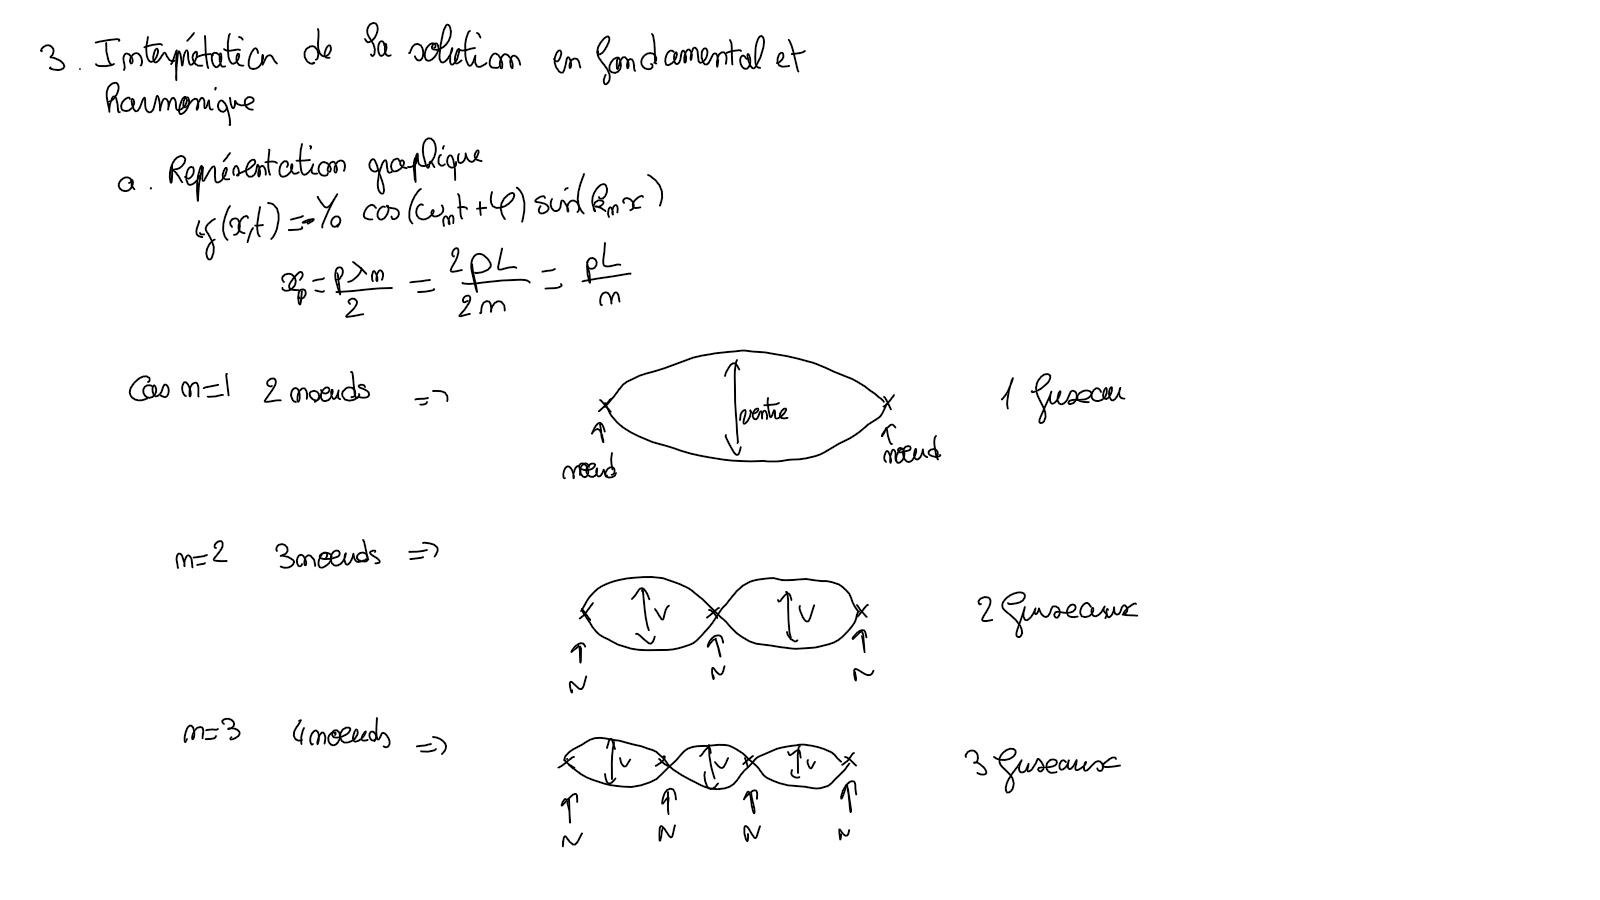 3. Interprétation de la solution en fondamental et
harmonique
a. Représentation graphique
y(x,t) = Y₀ cos(ωₙt + φ) sin(kₙx)
xₚ = pλₙ/2 = 2pL/2n = pL/n
Cas n=1 2 noeuds => ventre 1 fuseau
noeud noeud
n=2 3 noeuds =>
V V 2 fuseaux
N N N
n=3 4 noeuds =>
V V V 3 fuseaux
N N N N